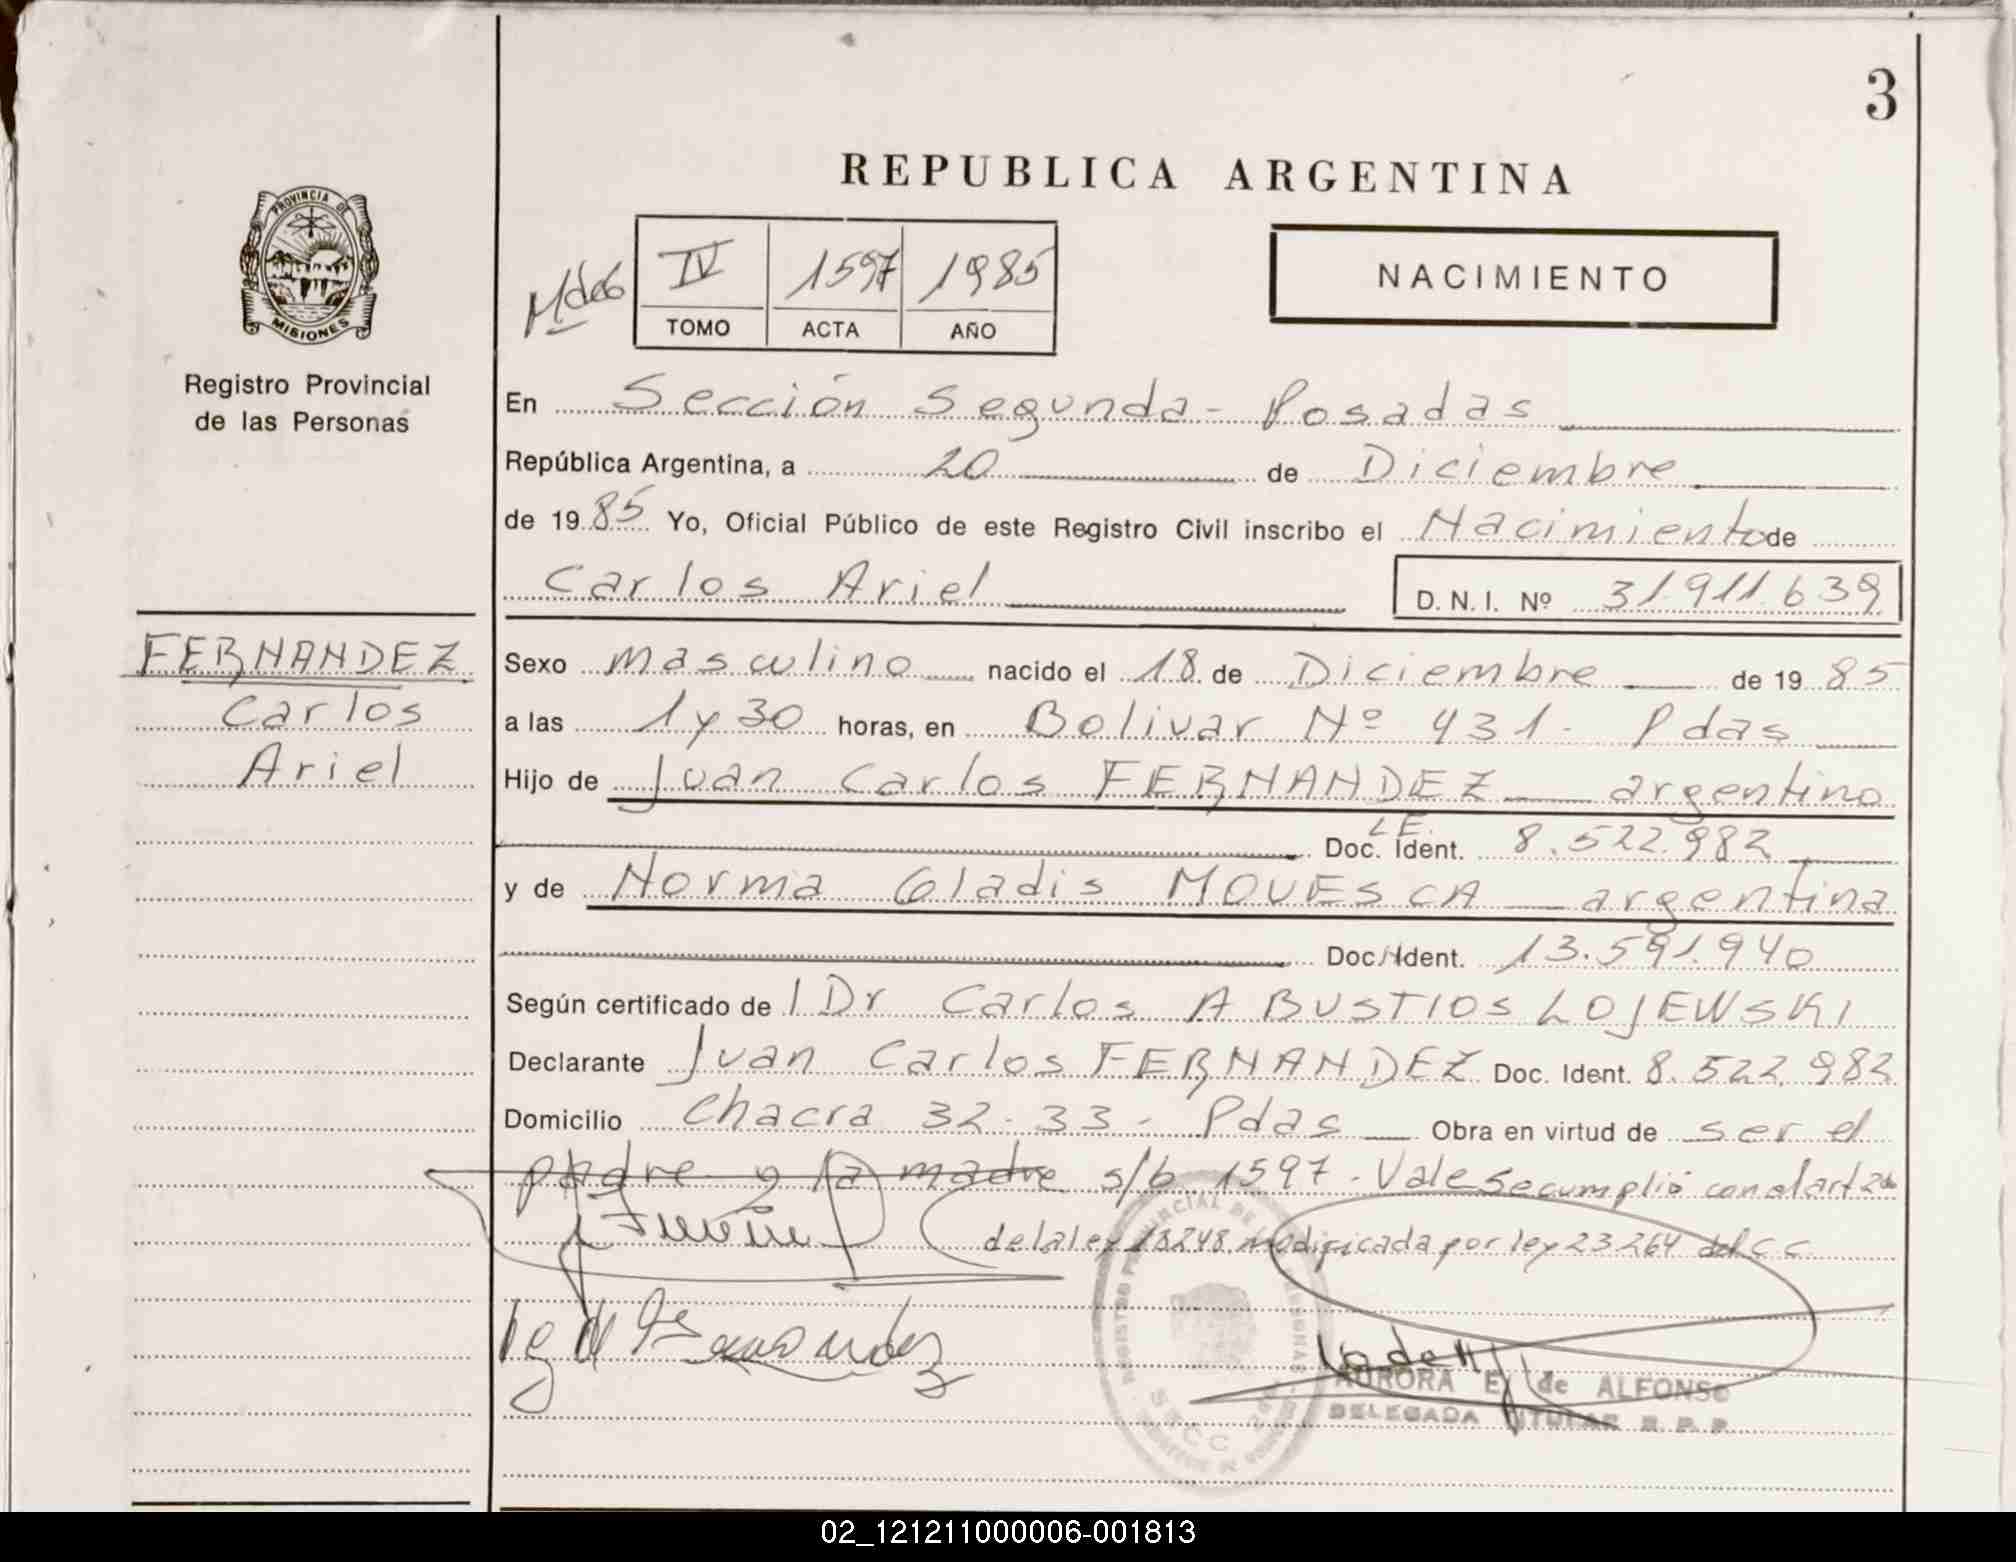 3
REPUBLICA ARGENTINA
PROVINCIA DE
MISIONES
Registro Provincial
de las Personas
IV 1597 1985
TOMO ACTA AÑO
NACIMIENTO
En Sección Segunda - Posadas
República Argentina, a 20 de Diciembre
de 1985 Yo, Oficial Público de este Registro Civil inscribo el Nacimiento de
Carlos Ariel D.N.I. Nº 31.911.639
FERNANDEZ
Carlos
Ariel
Sexo masculino nacido el 18 de Diciembre de 1985
a las 1 y 30 horas, en Bolivar Nº 431 - Pdas
Hijo de Juan Carlos FERNANDEZ argentino
L.E.
Doc. Ident. 8.522.982
y de Norma Gladis MOVESCA argentina
Doc. Ident. 13.591.940
Según certificado de l Dr Carlos A BUSTIOS LOJEWSKI
Declarante Juan Carlos FERNANDEZ Doc. Ident. 8.522.982
Domicilio Chacra 32-33 - Pdas Obra en virtud de ser el
padre y la madre s/b 1597 - Vale Se cumplió con el art 2
de la ley 18248 modificada por ley 23264 del C C
Fernandez
AURORA E. de ALFONSO
DELEGADA TITULAR R. P. P.
02_121211000006-001813